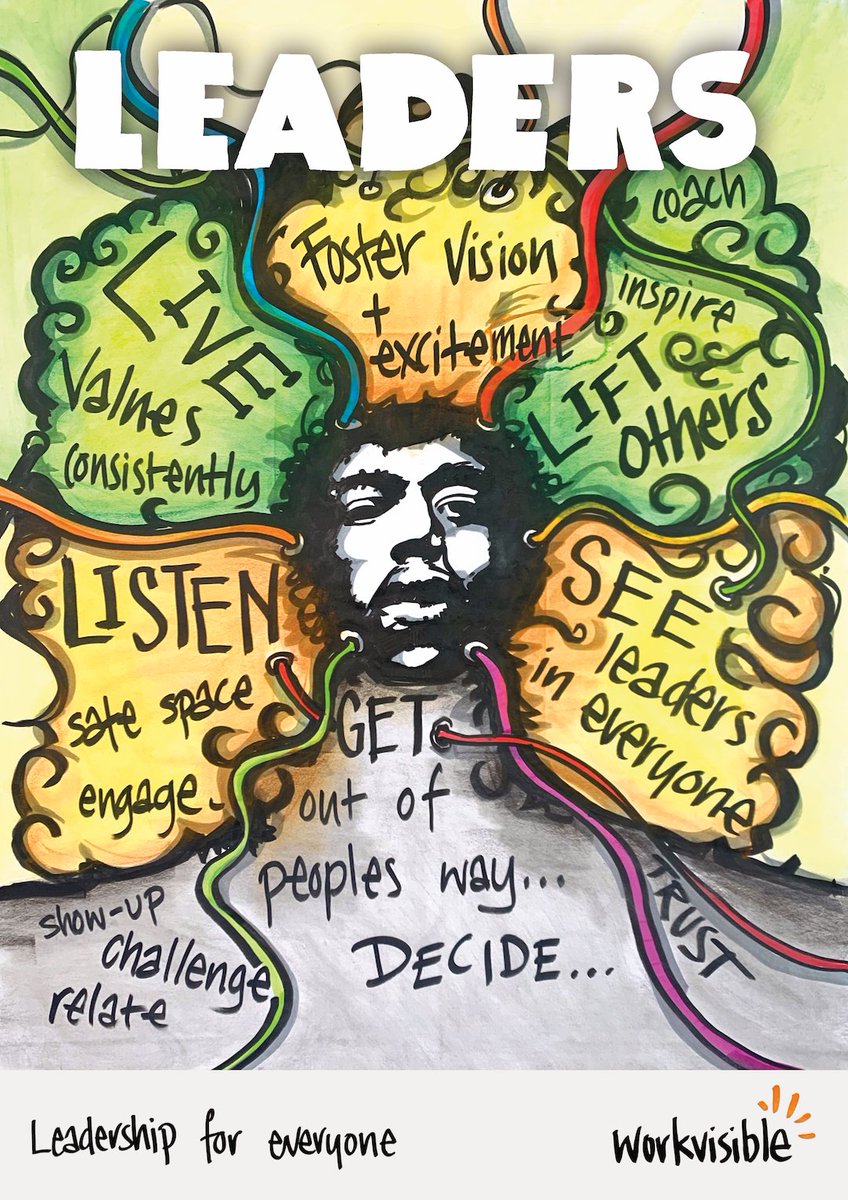 LEADERS
LIVE
Values
consistently
Foster Vision
+
excitement
coach
inspire
LIFT
others
LISTEN
safe space
engage.
SEE
leaders
in everyone
GET
out of
peoples way...
DECIDE...
TRUST
show-up
challenge
relate
Leadership for everyone
workvisible